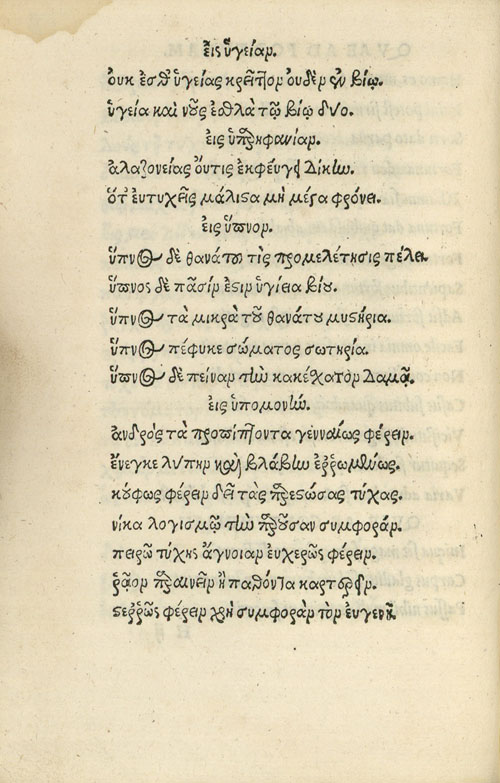 εἰς ὑγείαν.
οὐκ ἔσθ' ὑγείας κρεῖττον οὐδὲν ἐν βίῳ.
ὑγεία καὶ νοῦς ἐσθλὰ τῷ βίῳ δύο.
εἰς ὑπερηφανίαν.
ἀλαζονείας οὔτις ἐκφεύγει δίκην.
ὅτ' εὐτυχεῖς μάλιστα μὴ μέγα φρόνει.
εἰς ὕπνον.
ὕπνος δὲ θανάτου τὶς προμελέτησις πέλει.
ὕπνος δὲ πᾶσίν ἐστιν ὑγίεια βίου.
ὕπνος τὰ μικρὰ τοῦ θανάτου μυστήρια.
ὕπνος πέφυκε σώματος σωτηρία.
ὕπνος δὲ πεῖναν τὴν κακέχατον δαμᾷ.
εἰς ὑπομονήν.
ἀνδρὸς τὰ προσπίπτοντα γενναίως φέρειν.
ἔνεγκε λύπην καὶ βλάβην ἐῤῥωμένως.
κούφως φέρειν δεῖ τὰς παρεστώσας τύχας.
νίκα λογισμῷ τὴν παροῦσαν συμφοράν.
πειρῶ τύχης ἄγνοιαν εὐχερῶς φέρειν.
ῥᾷον παραινεῖν ἢ παθόντα καρτερεῖν.
στεῤῥῶς φέρειν χρὴ συμφορὰν τὸν εὐγενῆ.